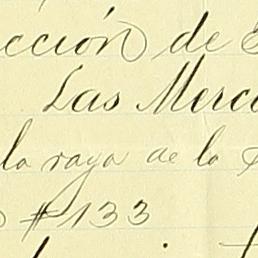 cción de
Las Merc
la raya de la
#133